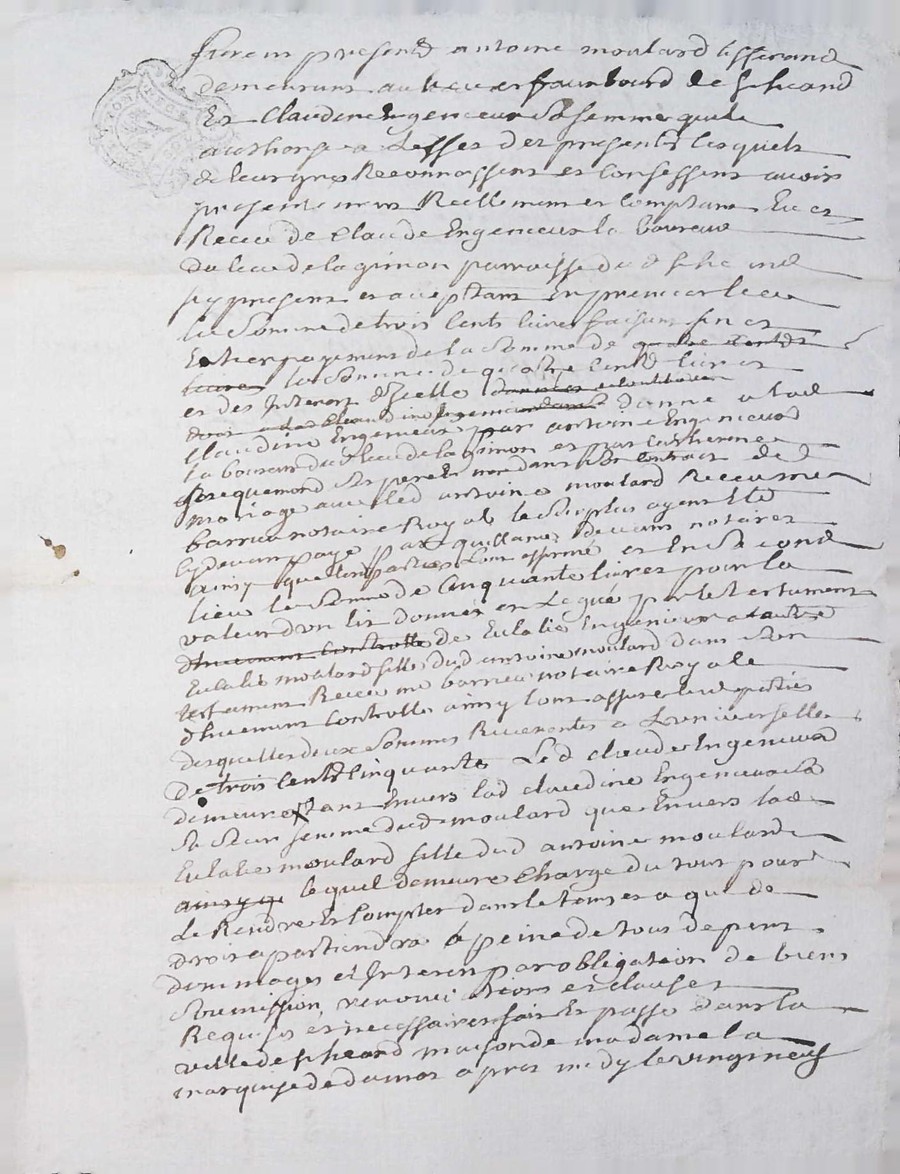 furem present antoine moulard tisserand
demeurant au fourbourd de
Et Claudine Engenieux Sa femme quila
authorise a Leffet des presents lesquels
de leur gres Reconnoissent et Confessent avoir
presentement Reellement et Comptant Eu et
Receu de Claude Engenieux laboureur
du lieu de la gimon parroisse dud
sy present et acceptant En premier lieu
la Somme de trois Cents livres faisant fin et
Entier payement de la Somme de quatre Cents
livres la Somme de quatre Cents livres
et des Interest dicelle
donné a lad
Claudine Engenieux par antoine Engenieux
laboureur du lieu de la gimon et par Catherine
ses pere et mere dans Son Contract de
mariage avec led antoine moulard Receu me
barrieu notaire Royal le Surplus ayent Esté
Cydevant paye par quittances devant notaires
ainsy que les parties lont affirmé et En Second
lieu la Somme de Cinquante livres pour la
valeur dun lit donnée et Legué par le testament
dhuement Controllé de Eulalie Engenieux a
Eulalie moulard fille dud antoine moulard dans Son
testament Receu me barrieu notaire Royale
dhuement Controllé ainsy lont assuré lesd parties
desquelles deux Sommes Revenantes a Luniverselle
De trois Cents Cinquante Led claude Engenieux
demeure quitant Envers lad claudine Engenieux
Sa Sœur femme dud moulard que Envers lad
Eulalie moulard fille dud antoine moulard
ainsy que lequel demeure Chargé du tout pour
le Rendre Et Compter dans le temps et a qui de
droit apartiendra a peine de tous depens
dommages et Interest par obligation de biens
Soumission, renonciations et clauses
Requises et necessaires fait Et passé dans la
ville de maison de madame la
marquise de apres midy le vingt neuf